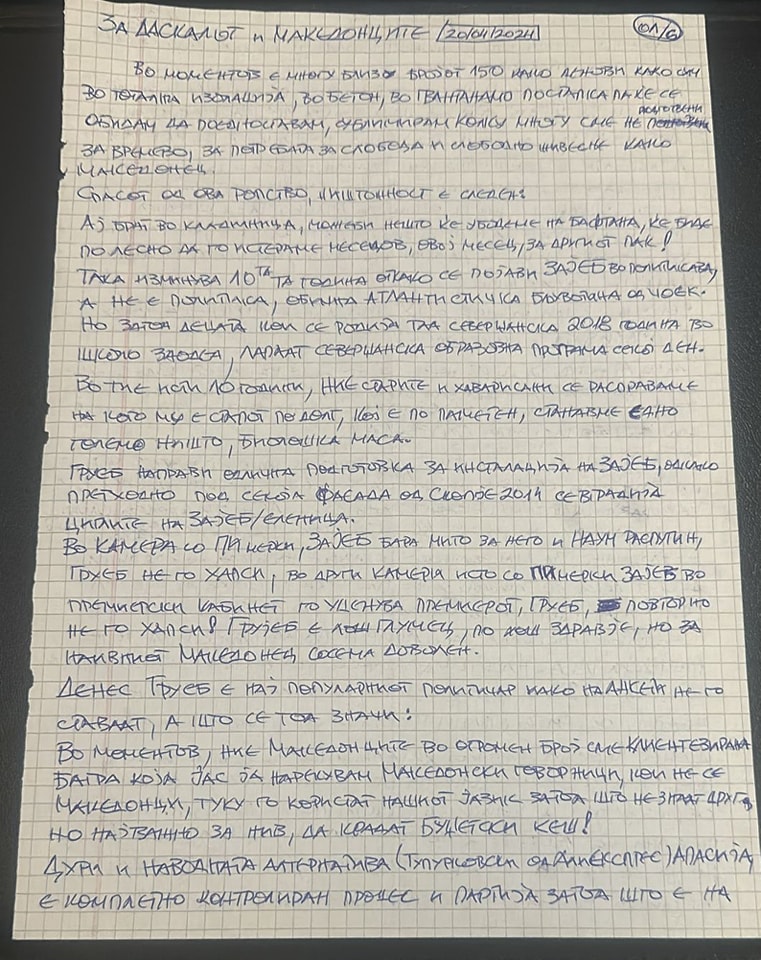 ЗА ДАСКАЛОТ и МАКЕДОНЦИТЕ /20/04/2024/ 01/6
ВО МОМЕНТОВ Е МНОГУ БЛИЗУ БРОЈОТ 150 КАКО ДЕНОВИ КАКО СУМ
ВО ТОТАЛНА ИЗОЛАЦИЈА, ВО БЕТОН, ВО ГВАНТАНАМО ПОСТАПКА ПАК ЌЕ СЕ
ОБИДАМ ДА ПОЕДНОСТАВАМ, СУБЛИМИРАМ КОЛКУ МНОГУ СМЕ НЕ ПОДГОТВЕНИ
ЗА ВРЕМЕВО, ЗА ПОТРЕБАТА ЗА СЛОБОДА И СЛОБОДНО ЖИВЕЕЊЕ КАКО
МАКЕДОНЕЦ.
СПАСОТ ОД ОВА РОПСТВО, НИШТОЖНОСТ Е СЛЕДЕН:
АЈ БРАТ ВО КЛАДИЛНИЦА, МОЖЕБИ НЕШТО ЌЕ УБОДЕМЕ НА БАФТАНА, ЌЕ БИДЕ
ПО ЛЕСНО ДА ГО ИСТЕРАМЕ МЕСЕЦОВ, ОВОЈ МЕСЕЦ, ЗА ДРУГИОТ ПАК!
ТАКА ИЗМИНУВА 10ТА ТА ГОДИНА ОТКАКО СЕ ПОЈАВИ ЗАЈЕБ ВО ПОЛИТИКАВА,
А НЕ Е ПОЛИТИКА, ОБИЧНА АТЛАНТИСТИЧКА БЛУВОТИНА ОД ЧОЕК.
НО ЗАТОА ДЕЦАТА КОИ СЕ РОДИЈА ТАА СЕВЕРЏАНСКА 2018 ГОДИНА ВО
ШКОЛО ЗАОДЕА, ЛАПААТ СЕВЕРЏАНСКА ОБРАЗОВНА ПРОГРАМА СЕКОЈ ДЕН.
ВО ТИЕ ИСТИ 10 ГОДИНИ, НИЕ СТАРИТЕ И ХАВАРИСАНИ СЕ РАСПРАВАМЕ
НА КОГО МУ Е СТАПОТ ПО ДОЛГ, КОЈ Е ПО ПАМЕТЕН, СТАНАВМЕ ЕДНО
ГОЛЕМО НИШТО, БИОЛОШКА МАСА.
ГРУЕБ НАПРАВИ ОДЛИЧНА ПОДГОТОВКА ЗА ИНСТАЛАЦИЈА НА ЗАЈЕБ, ОДКАКО
ПРЕТХОДНО ПОД СЕКОЈА ФАСАДА ОД СКОПЈЕ 2014 СЕ ВГРАДИЈА
ЦИГЛИТЕ НА ЗАЈЕБ/ЕЛЕНИЦА.
ВО КАМЕРА СО ПИНЕРКИ, ЗАЈЕБ БАРА МИТО ЗА НЕГО И НАУМ РАСПУТИН,
ГРУЕБ НЕ ГО ХАПСИ, ВО ДРУГИ КАМЕРИ ИСТО СО ПИНЕРКИ ЗАЈЕБ ВО
ПРЕМИЕРСКИ КАБИНЕТ ГО УЦЕНУВА ПРЕМИЕРОТ, ГРУЕБ, ПОВТОРНО
НЕ ГО ХАПСИ! ГРУЈЕБ Е ЛОШ ГЛУМЕЦ, ПО ЛОШ ЗДРАВЈЕ, НО ЗА
НАИВНИОТ МАКЕДОНЕЦ СОСЕМА ДОВОЛЕН.
ДЕНЕС ГРУЕБ Е НАЈ ПОПУЛАРНИОТ ПОЛИТИЧАР ИАКО НА АНКЕТИ НЕ ГО
СТАВААТ, А ШТО СЕ ТОА ЗНАЧИ:
ВО МОМЕНТОВ, НИЕ МАКЕДОНЦИТЕ ВО ОГРОМЕН БРОЈ СМЕ КЛИЕНТЕЗИРАНА
БАГРА КОЈА ЈАС ЈА НАРЕКУВАМ МАКЕДОНСКИ ГОВОРНИЦИ, КОИ НЕ СЕ
МАКЕДОНЦИ, ТУКУ ГО КОРИСТАТ НАШИОТ ЈАЗИК ЗАТОА ШТО НЕ ЗНААТ ДРУГ,
НО НАЈВАЖНО ЗА НИВ, ДА КРАДАТ БУЏЕТСКИ КЕШ!
ДУРИ И НАВОДНАТА АЛТЕРНАТИВА (ТУПУРКОВСКИ ОД АЛИЕКСПРЕС) АПАСИЈА,
Е КОМПЛЕТНО КОНТРОЛИРАН ПРОЦЕС И ПАРТИЈА ЗАТОА ШТО Е НА